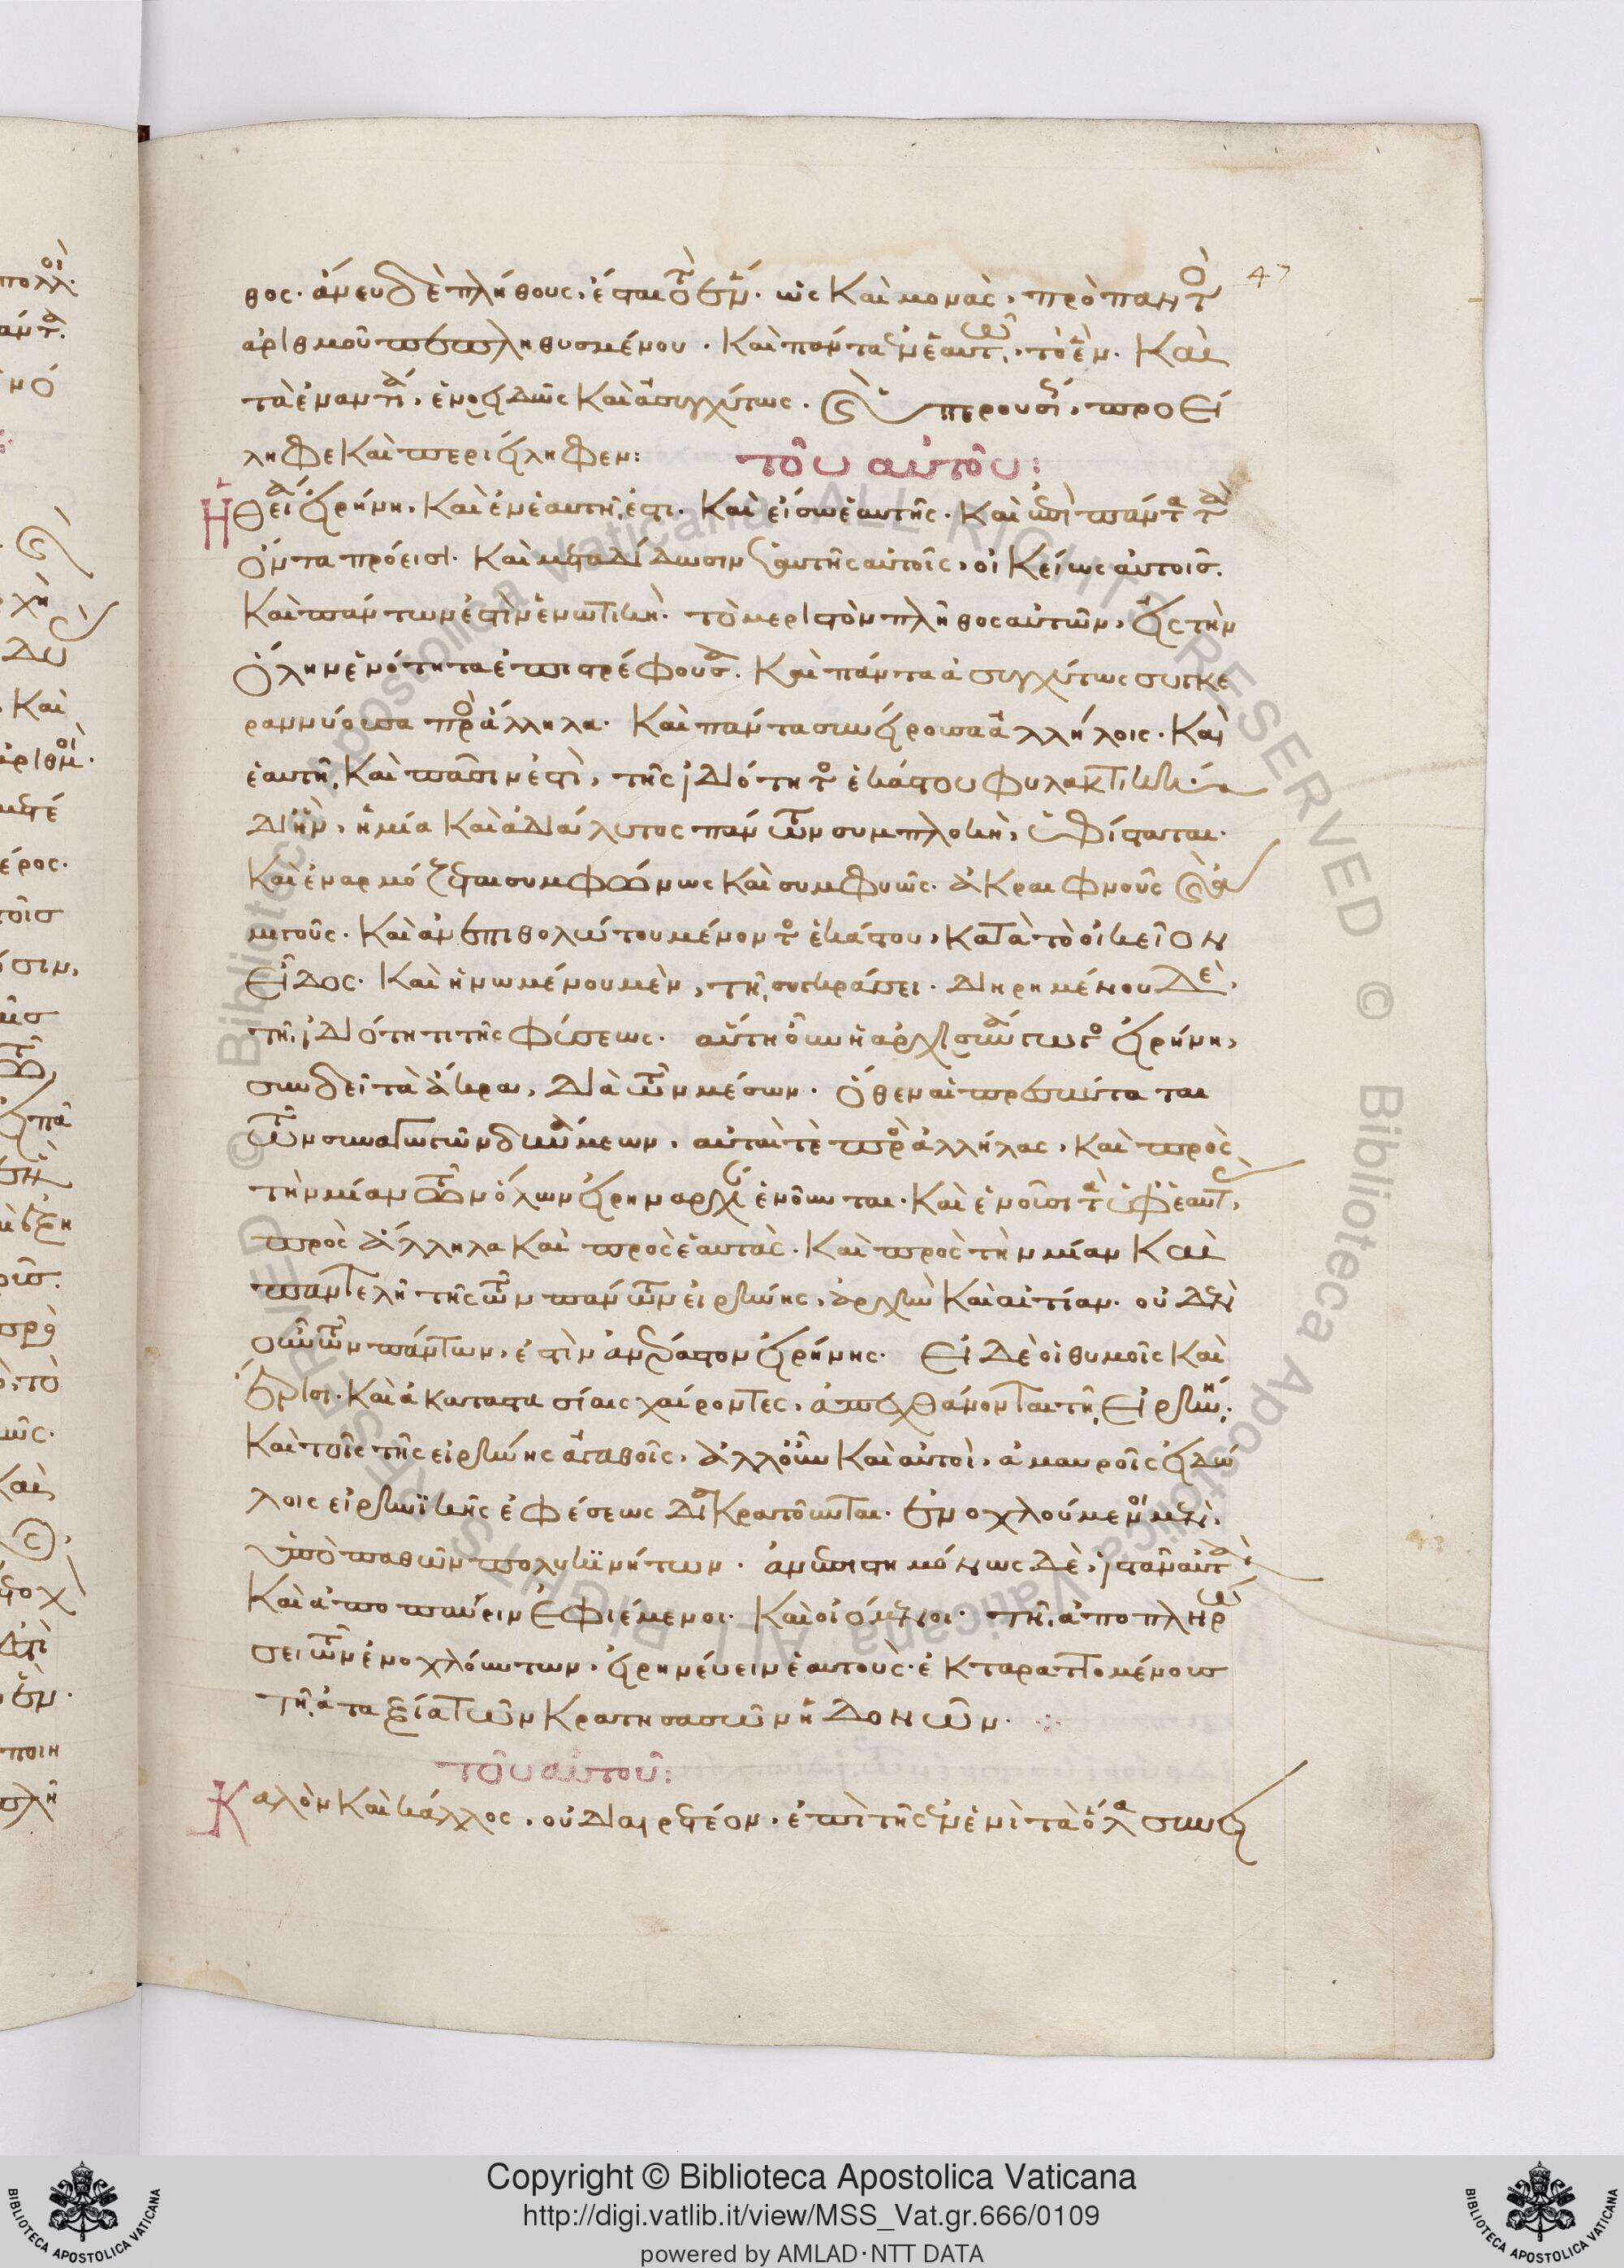 47
θος. ἄνευ δὲ πλήθους, ἔσται τὸ ἕν. ὡς καὶ μονὰς, πρὸ παντὸς
ἀριθμοῦ πεπληθυσμένου. καὶ πάντα ἐν ἑαυτῷ, τὸ ἕν. καὶ
τὰ ἐναντία, ἑνοειδῶς καὶ ἀσυγχύτως. προεί
ληφε καὶ περιείληφεν:
τοῦ αὐτοῦ:
Ἡ θεία εἰρήνη, καὶ ἐν ἑαυτῇ ἐστι. καὶ εἴσω ἑαυτῆς. καὶ ἐπὶ πάντα τὰ
ὄντα πρόεισι. καὶ μεταδίδωσιν ἑαυτῆς αὐτοῖς, οἰκείως αὐτοῖς.
καὶ πάντων ἐστὶν ἑνωτική. τὸ μεριστὸν πλῆθος αὐτῶν, εἰς τὴν
ὅλην ἑνότητα ἐπιστρέφουσα. καὶ πάντα ἀσυγχύτως συγκε
ραννύουσα πρὸς ἄλληλα. καὶ πάντα συνείρουσα ἀλλήλοις. καὶ
ἑαυτῇ, καὶ πᾶσιν ἐστὶ, τῆς ἰδιότητος ἑκάστου φυλακτική.
δι' ἣν, ἡ μία καὶ ἀδιάλυτος πάντων συμπλοκὴ, ὑφίσταται.
καὶ ἐναρμόζεται συμφώνως καὶ συμφυῶς. ἀκραιφνοῦς
μιγοῦς. καὶ ἀνεπιθολώτου μένοντος ἑκάστου, κατὰ τὸ οἰκεῖον
εἶδος. καὶ ἡνωμένου μὲν, τῇ συγκράσει. διῃρημένου δὲ,
τῇ ἰδιότητι τῆς φύσεως. αὕτη οὖν ἡ ἀρχισυνάγωγος εἰρήνη,
συνδεῖ τὰ ἄκρα, διὰ τῶν μέσων. ὅθεν αἱ πρεσβύταται
τῶν συναγωγῶν δυνάμεων, αὐταί τε πρὸς ἀλλήλας, καὶ πρὸς
τὴν μίαν τῶν ὅλων εἰρηναρχίαν ἑνοῦνται. καὶ ἑνοῦσι τὰ ὑφ' ἑαυτὰς,
πρὸς ἄλληλα καὶ πρὸς ἑαυτὰς. καὶ πρὸς τὴν μίαν καὶ
παντελῆ τῆς τῶν πάντων εἰρήνης, ἀρχὴν καὶ αἰτίαν. οὐδὲν
οὖν τῶν πάντων, ἐστὶν ἀμέτοχον εἰρήνης. Εἰ δὲ οἱ θυμοῖς καὶ
ἔρισι. καὶ ἀκαταστασίαις χαίροντες, ἀπεχθάνονται τῇ εἰρήνῃ.
καὶ τοῖς τῆς εἰρήνης ἀγαθοῖς, ἀλλ' οὖν καὶ αὐτοὶ, ἀμαυροῖς εἰδώ
λοις εἰρηνικῆς ἐφέσεως διακρατοῦνται. ἐνοχλούμενοι μὲν,
ὑπὸ παθῶν πολυκινήτων. ἀνεπιστημόνως δὲ, ἱστᾶν αὐτὰ
καὶ ἀποπαύειν ἐφιέμενοι. καὶ οἰόμενοι. τῇ ἀποπληρώ
σει τῶν ἐνοχλούντων, εἰρηνεύειν ἑαυτοὺς. ἐκταραττομένους
τῇ ἀταξίᾳ τῶν κρατησασῶν ἡδονῶν.
τοῦ αὐτοῦ:
Καλὸν καὶ κάλλος, οὐ διαιρετέον, ἐπὶ τῆς ἐν ἑνὶ τὰ ὅλα συνει
Copyright © Biblioteca Apostolica Vaticana
http://digi.vatlib.it/view/MSS_Vat.gr.666/0109
powered by AMLAD·NTT DATA